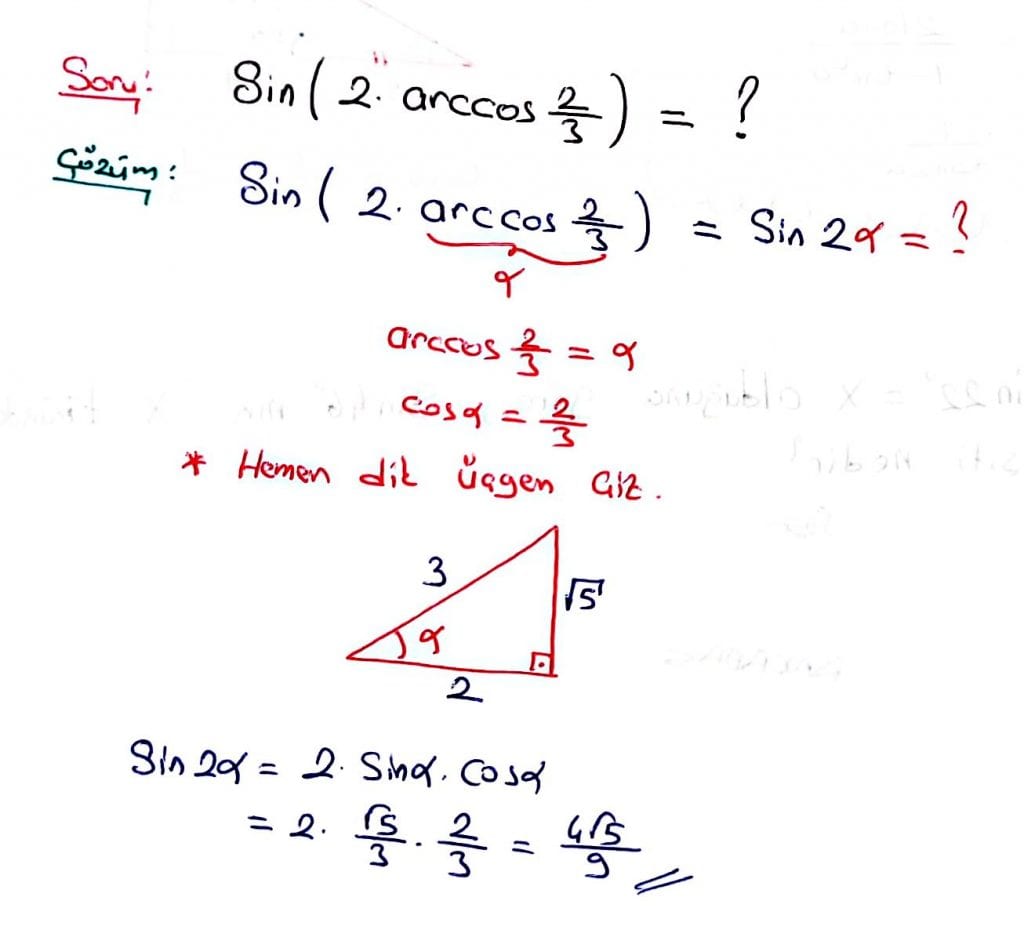 Soru: Sin(2. arccos 2/3) = ?
Çözüm: Sin(2. arccos 2/3) = Sin 2α = ?
α
arccos 2/3 = α
cosα = 2/3
* Hemen dik üçgen çiz.
3
√5
α
2
Sin 2α = 2. Sinα. Cosα
= 2. √5/3 . 2/3 = 4√5/9